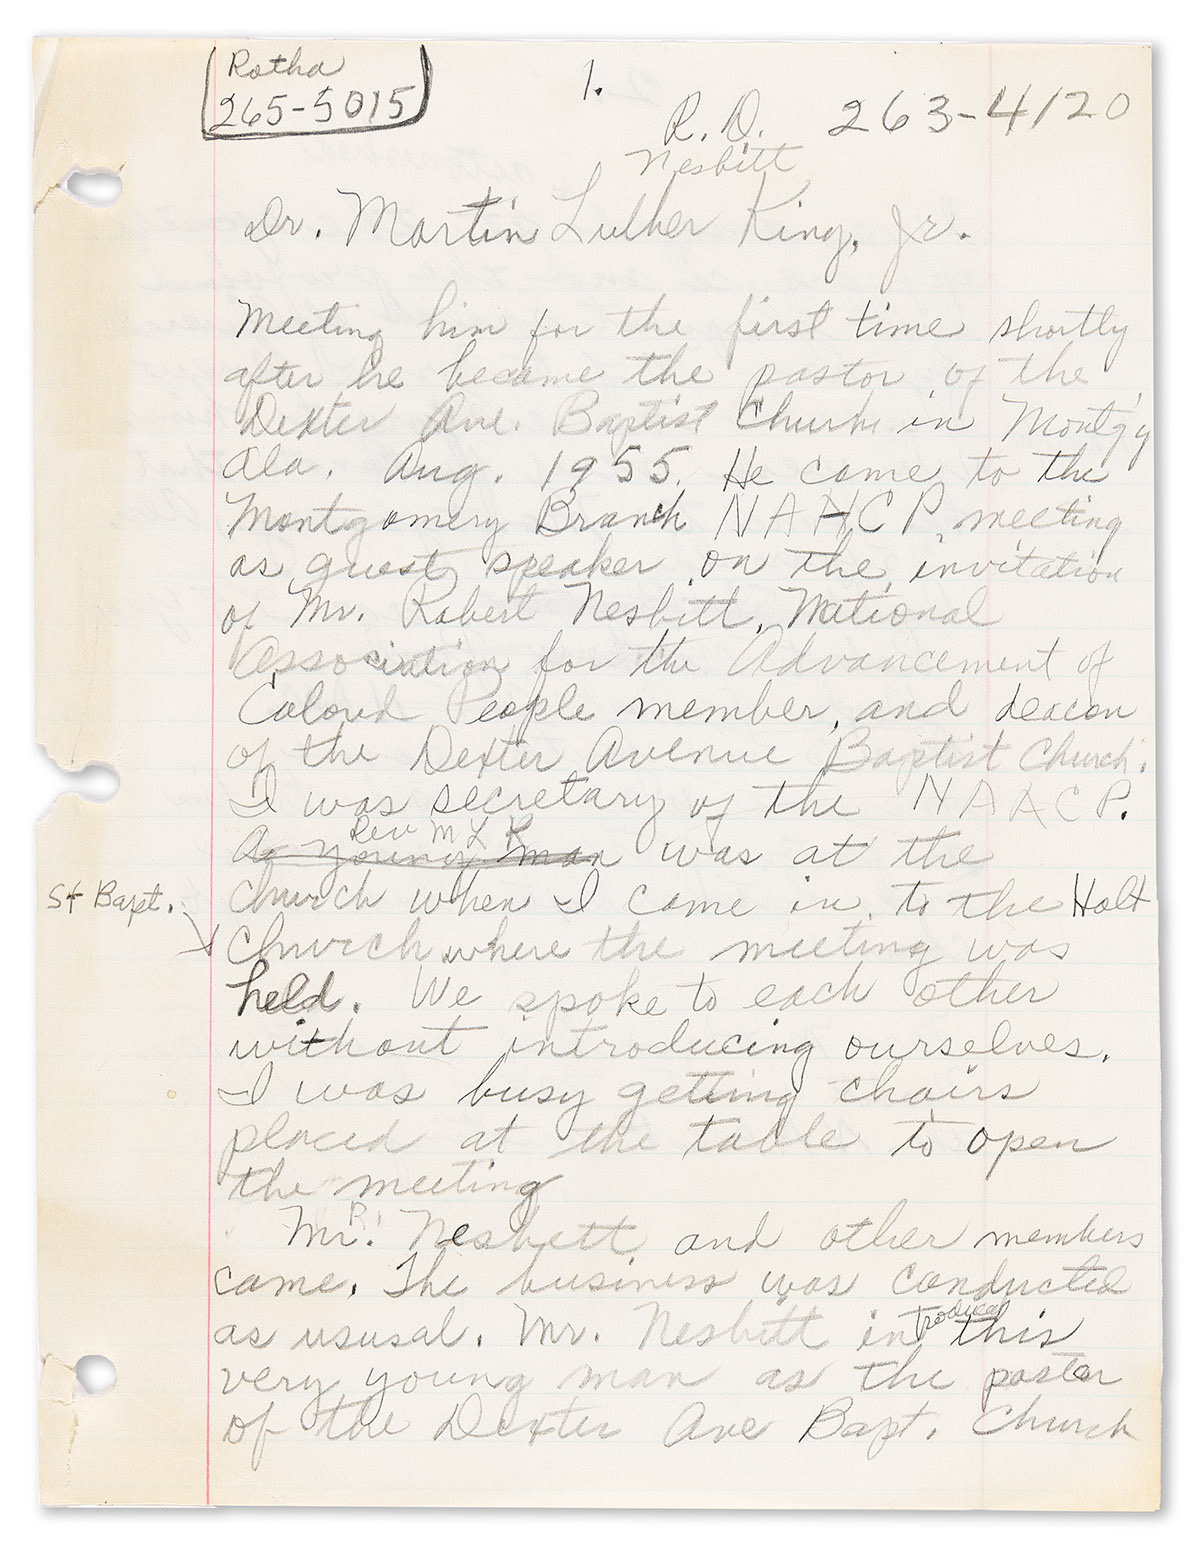 Rotha
265-5015
1.
R.D. 263-4120
Nesbitt
Dr. Martin Luther King, Jr.
Meeting him for the first time shortly
after he became the pastor of the
Dexter Ave. Baptist Church in Montg'y
Ala. Aug. 1955. He came to the
Montgomery Branch NAACP, meeting
as guest speaker on the invitation
of Mr. Robert Nesbitt, National
Association for the Advancement of
Colored People member, and deacon
of the Dexter Avenue Baptist Church.
I was secretary of the NAACP.
Rev M L K
A young man was at the
church when I came in to the Holt
St Bapt.
church where the meeting was
held. We spoke to each other
without introducing ourselves.
I was busy getting chairs
placed at the table to open
the meeting
Mr. R. Nesbitt and other members
came. The business was conducted
as ususal. Mr. Nesbitt introduced this
very young man as the pastor
of the Dexter Ave Bapt. Church